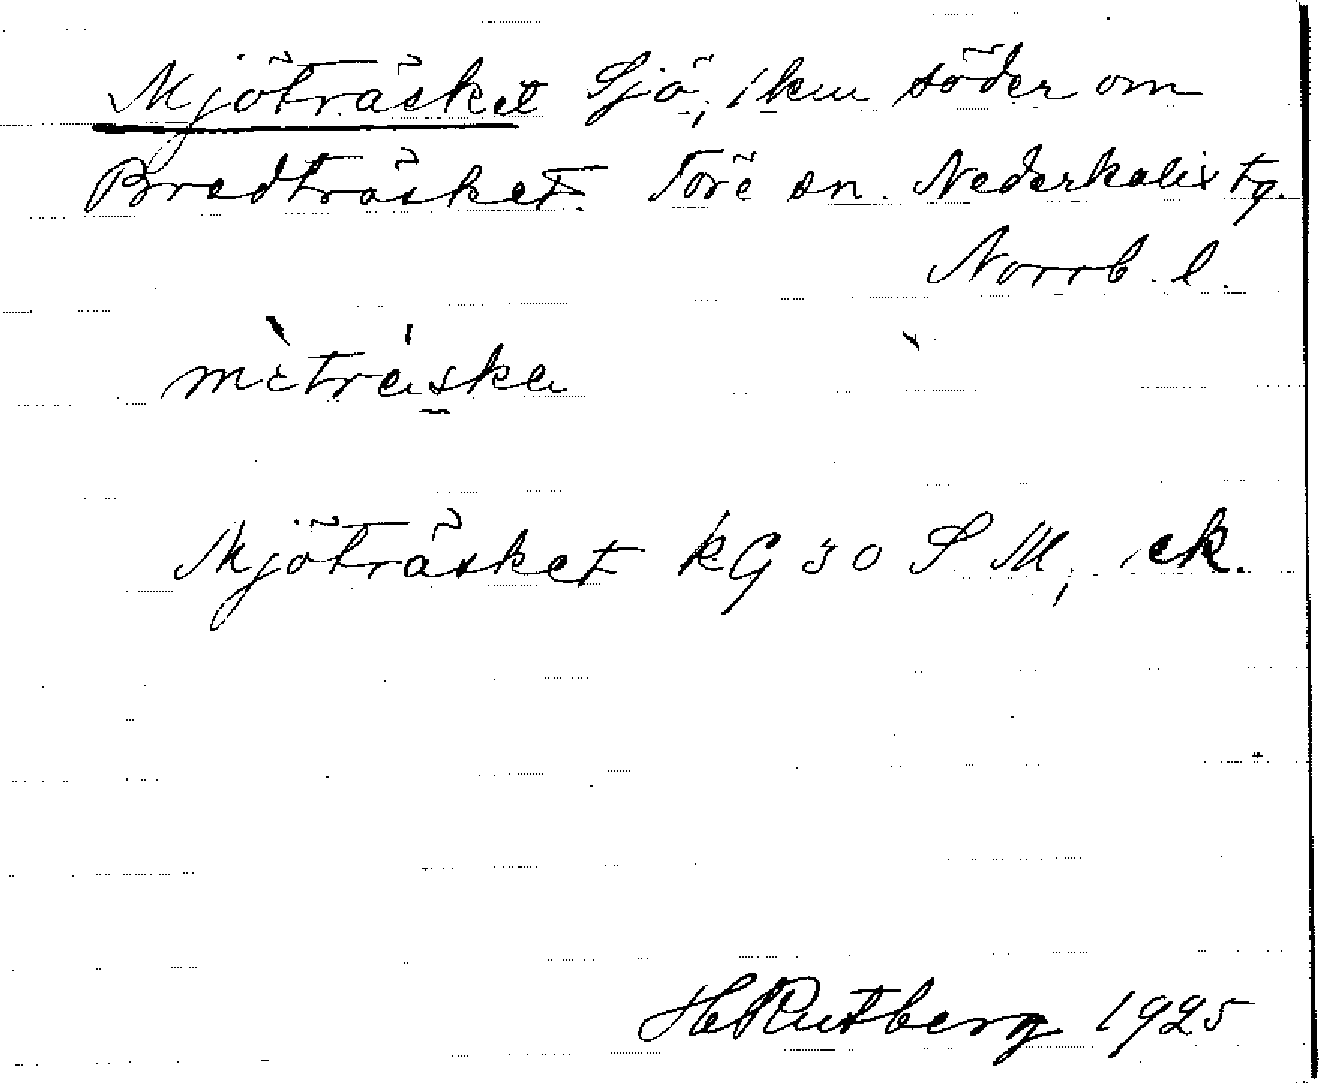 Mjöträsket Sjö, 1 km söder om
Bredträsket. Töre sn. Nederkalix tg.
Norrb. l.
mètráska
Mjöträsket KG 30 S M, ek.
H Rutberg 1925